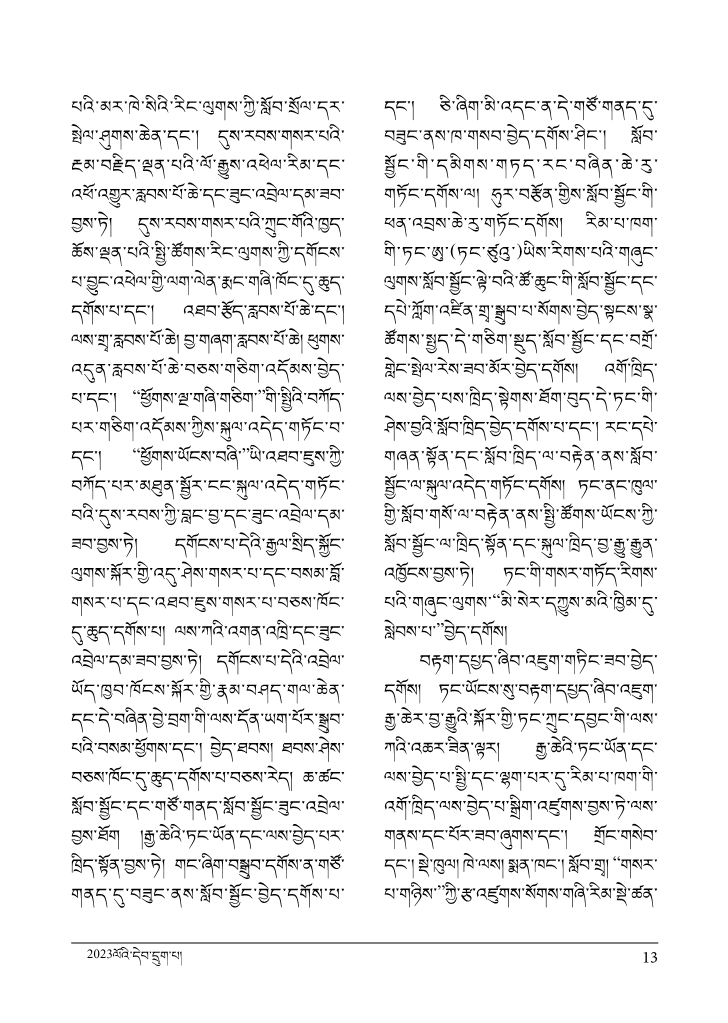 པའི་མར་ཁེ་སིའི་རིང་ལུགས་ཀྱི་སློབ་སྲོལ་དར་
སྤེལ་ཤུགས་ཆེན་དང་།   དུས་རབས་གསར་པའི་
རྔམ་བརྗིད་ལྡན་པའི་ལོ་རྒྱུས་འཕེལ་རིམ་དང་
འཕོ་འགྱུར་རླབས་པོ་ཆེ་དང་ཟུང་འབྲེལ་དམ་ཟབ་
བྱས་ཏེ།   དུས་རབས་གསར་པའི་ཀྲུང་གོའི་ཁྱད་
ཆོས་ལྡན་པའི་སྤྱི་ཚོགས་རིང་ལུགས་ཀྱི་དགོངས་
པ་བྱུང་འཕེལ་གྱི་ལག་ལེན་རྨང་གཞི་ཁོང་དུ་ཆུད་
དགོས་པ་དང་།   འཐབ་རྩོད་རླབས་པོ་ཆེ་དང་།
ལས་གྲྭ་རླབས་པོ་ཆེ། བྱ་གཞག་རླབས་པོ་ཆེ། ཕུགས་
འདུན་རླབས་པོ་ཆེ་བཅས་གཅིག་འདོམས་བྱེད་
པ་དང་།  “ཕྱོགས་ལྔ་གཞི་གཅིག་”གི་སྤྱིའི་བཀོད་
པར་གཅིག་འདོམས་ཀྱིས་སྐུལ་འདེད་གཏོང་བ་
དང་།   “ཕྱོགས་ཡོངས་བཞི་”ཡི་འཐབ་ཇུས་ཀྱི་
བཀོད་པར་མཐུན་སྦྱོར་ངང་སྐུལ་འདེད་གཏོང་
བའི་དུས་རབས་ཀྱི་བླང་བྱ་དང་ཟུང་འབྲེལ་དམ་
ཟབ་བྱས་ཏེ།   དགོངས་པ་དེའི་རྒྱལ་སྲིད་སྐྱོང་
ལུགས་སྐོར་གྱི་འདུ་ཤེས་གསར་པ་དང་བསམ་བློ་
གསར་པ་དང་འཐབ་ཇུས་གསར་པ་བཅས་ཁོང་
དུ་ཆུད་དགོས་པ། ལས་ཀའི་འགན་འཁྲི་དང་ཟུང་
འབྲེལ་དམ་ཟབ་བྱས་ཏེ།   དགོངས་པ་དེའི་འབྲེལ་
ཡོད་ཁྱབ་ཁོངས་སྐོར་གྱི་རྣམ་བཤད་གལ་ཆེན་
དང་དེ་བཞིན་བྱེ་བྲག་གི་ལས་དོན་ཡག་པོར་སྒྲུབ་
པའི་བསམ་ཕྱོགས་དང་། བྱེད་ཐབས། ཐབས་ཤེས་
བཅས་ཁོང་དུ་ཆུད་དགོས་པ་བཅས་རེད། ཆ་ཚང་
སློབ་སྦྱོང་དང་གཙོ་གནད་སློབ་སྦྱོང་ཟུང་འབྲེལ་
བྱས་ཐོག   །རྒྱ་ཆེའི་ཏང་ཡོན་དང་ལས་བྱེད་པར་
ཁྲིད་སྟོན་བྱས་ཏེ། གང་ཞིག་བསྒྲུབ་དགོས་ན་གཙོ་
གནད་དུ་བཟུང་ནས་སློབ་སྦྱོང་བྱེད་དགོས་པ་
དང་།   ཅི་ཞིག་མི་འདང་ན་དེ་གཙོ་གནད་དུ་
བཟུང་ནས་ཁ་གསབ་བྱེད་དགོས་ཤིང་།   སློབ་
སྦྱོང་གི་དམིགས་གཏད་རང་བཞིན་ཆེ་རུ་
གཏོང་དགོས་ལ། ཧུར་བརྩོན་གྱིས་སློབ་སྦྱོང་གི་
ཕན་འབྲས་ཆེ་རུ་གཏོང་དགོས།   རིམ་པ་ཁག་
གི་ཏང་ཨུ་(ཏང་ཙུའུ་)ཡིས་རིགས་པའི་གཞུང་
ལུགས་སློབ་སྦྱོང་ལྟེ་བའི་ཚོ་ཆུང་གི་སློབ་སྦྱོང་དང་
དཔེ་ཀློག་འཛིན་གྲྭ་སྒྲུབ་པ་སོགས་བྱེད་སྟངས་སྣ་
ཚོགས་སྤྱད་དེ་གཅིག་སྡུད་སློབ་སྦྱོང་དང་བགྲོ་
གླེང་སྤེལ་རེས་ཟབ་མོར་བྱེད་དགོས།   འགོ་ཁྲིད་
ལས་བྱེད་པས་ཁྲིད་སྟེགས་ཐོག་བུད་དེ་ཏང་གི་
ཤེས་བྱའི་སློབ་ཁྲིད་བྱེད་དགོས་པ་དང་། རང་དཔེ་
གཞན་སྟོན་དང་སློབ་ཁྲིད་ལ་བརྟེན་ནས་སློབ་
སྦྱོང་ལ་སྐུལ་འདེད་གཏོང་དགོས།   ཏང་ནང་ཁུལ་
གྱི་སློབ་གསོ་ལ་བརྟེན་ནས་སྤྱི་ཚོགས་ཡོངས་ཀྱི་
སློབ་སྦྱོང་ལ་ཁྲིད་སྟོན་དང་སྐུལ་ཁྲིད་བྱ་རྒྱུ་རྒྱུན་
འཁྱོངས་བྱས་ཏེ།   ཏང་གི་གསར་གཏོད་རིགས་
པའི་གཞུང་ལུགས་“མི་སེར་དཀྱུས་མའི་ཁྱིམ་དུ་
སླེབས་པ་”བྱེད་དགོས།
བརྟག་དཔྱད་ཞིབ་འཇུག་གཏིང་ཟབ་བྱེད་
དགོས།   ཏང་ཡོངས་སུ་བརྟག་དཔྱད་ཞིབ་འཇུག་
རྒྱ་ཆེར་བྱ་རྒྱུའི་སྐོར་གྱི་ཏང་ཀྲུང་དབྱང་གི་ལས་
ཀའི་འཆར་ཟིན་ལྟར།   རྒྱ་ཆེའི་ཏང་ཡོན་དང་
ལས་བྱེད་པ་སྤྱི་དང་ལྷག་པར་དུ་རིམ་པ་ཁག་གི་
འགོ་ཁྲིད་ལས་བྱེད་པ་སྒྲིག་འཛུགས་བྱས་ཏེ་ལས་
གནས་དང་པོར་ཟབ་ཞུགས་དང་།   གྲོང་གསེབ་
དང་། སྡེ་ཁུལ། ཁེ་ལས། སྨན་ཁང་། སློབ་གྲྭ། “གསར་
པ་གཉིས་”ཀྱི་རྩ་འཛུགས་སོགས་གཞི་རིམ་སྡེ་ཚན་
2023ལོའི་དེབ་དྲུག་པ།
13